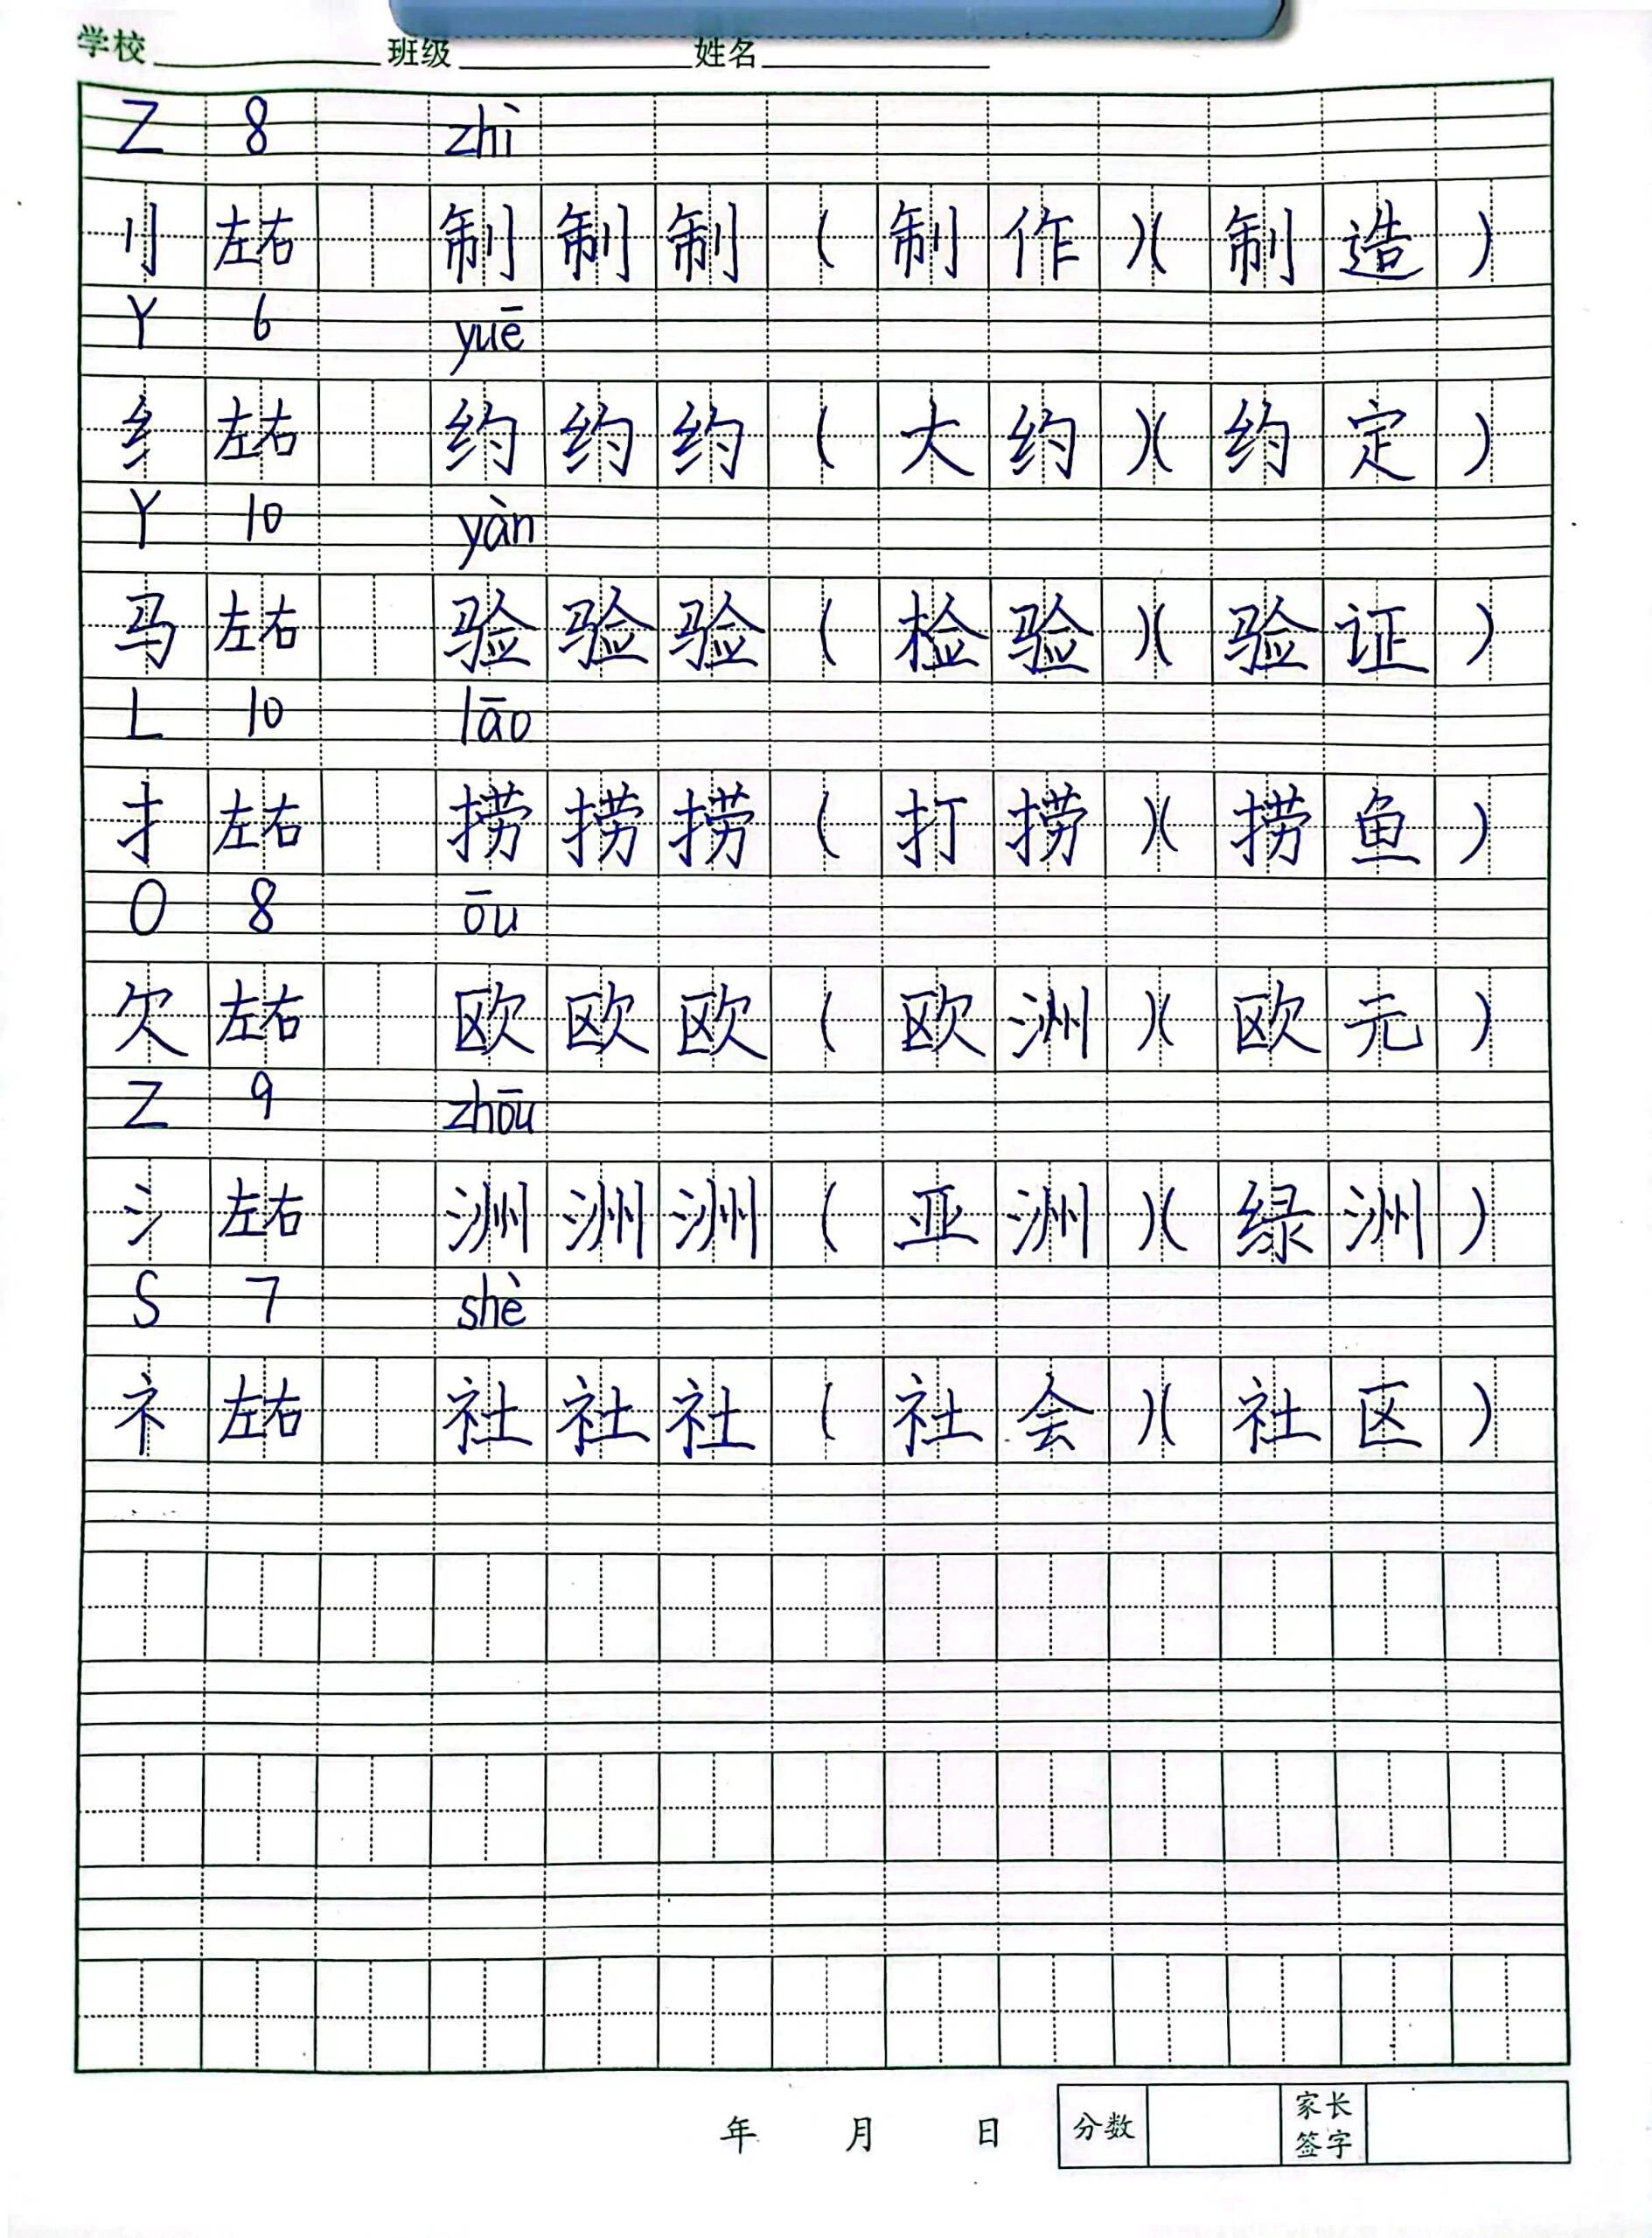 学校 班级 姓名
Z 8 zhì
刂 左右 制 制 制 ( 制 作 )( 制 造 )
Y 6 yuē
纟 左右 约 约 约 ( 大 约 )( 约 定 )
Y 10 yàn
马 左右 验 验 验 ( 检 验 )( 验 证 )
L 10 lāo
扌 左右 捞 捞 捞 ( 打 捞 )( 捞 鱼 )
O 8 ōu
欠 左右 欧 欧 欧 ( 欧 洲 )( 欧 元 )
Z 9 zhōu
氵 左右 洲 洲 洲 ( 亚 洲 )( 绿 洲 )
S 7 shè
礻 左右 社 社 社 ( 社 会 )( 社 区 )
年 月 日 分数 家长签字